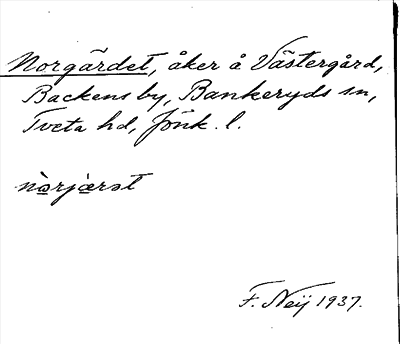 Norgärdet, åker å Västergård,
Backens by, Bankeryds sn,
Tveta hd, Jönk. l.
F. Neij 1937.